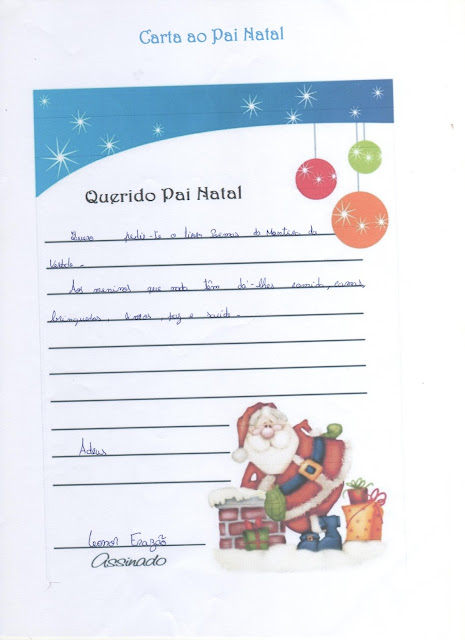 Carta ao Pai Natal
Querido Pai Natal
Quero pedir-te o livro Poemas da Mentira da
Verdade.
Aos meninos que nada têm dá-lhes comida, camas,
brinquedos, livros, paz e saúde.
Adeus
Leonor Frazão
Assinado